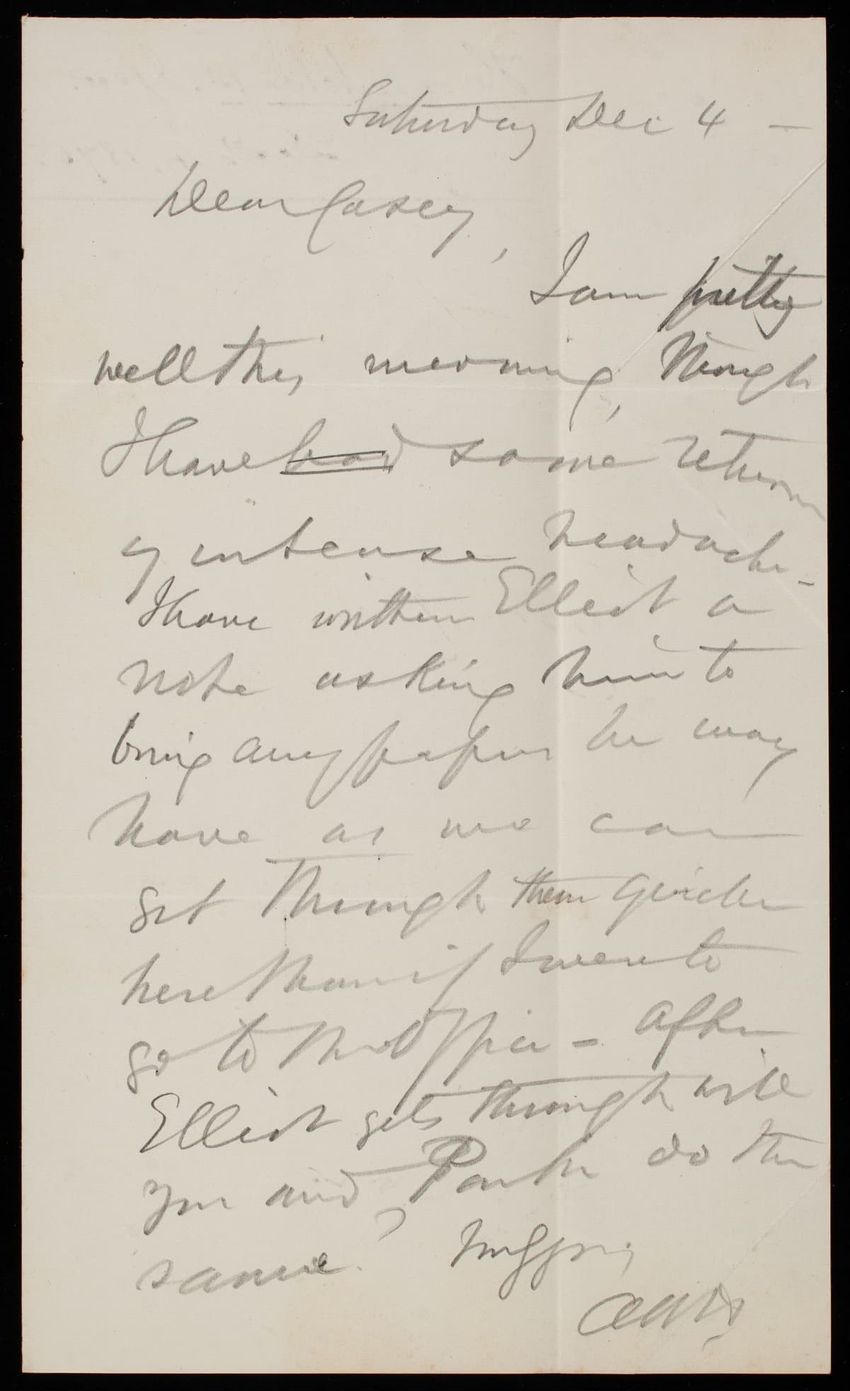 Saturday Dec 4 —
Dear Casey,
I am pretty
well this morning, though
I have had some return
of intense headache -
I have written Elliot a
note asking him to
bring any papers he may
have as we can
get through them quicker
here than if I were to
go to the Office - After
Elliot gets through will
you and Parke do the
same?